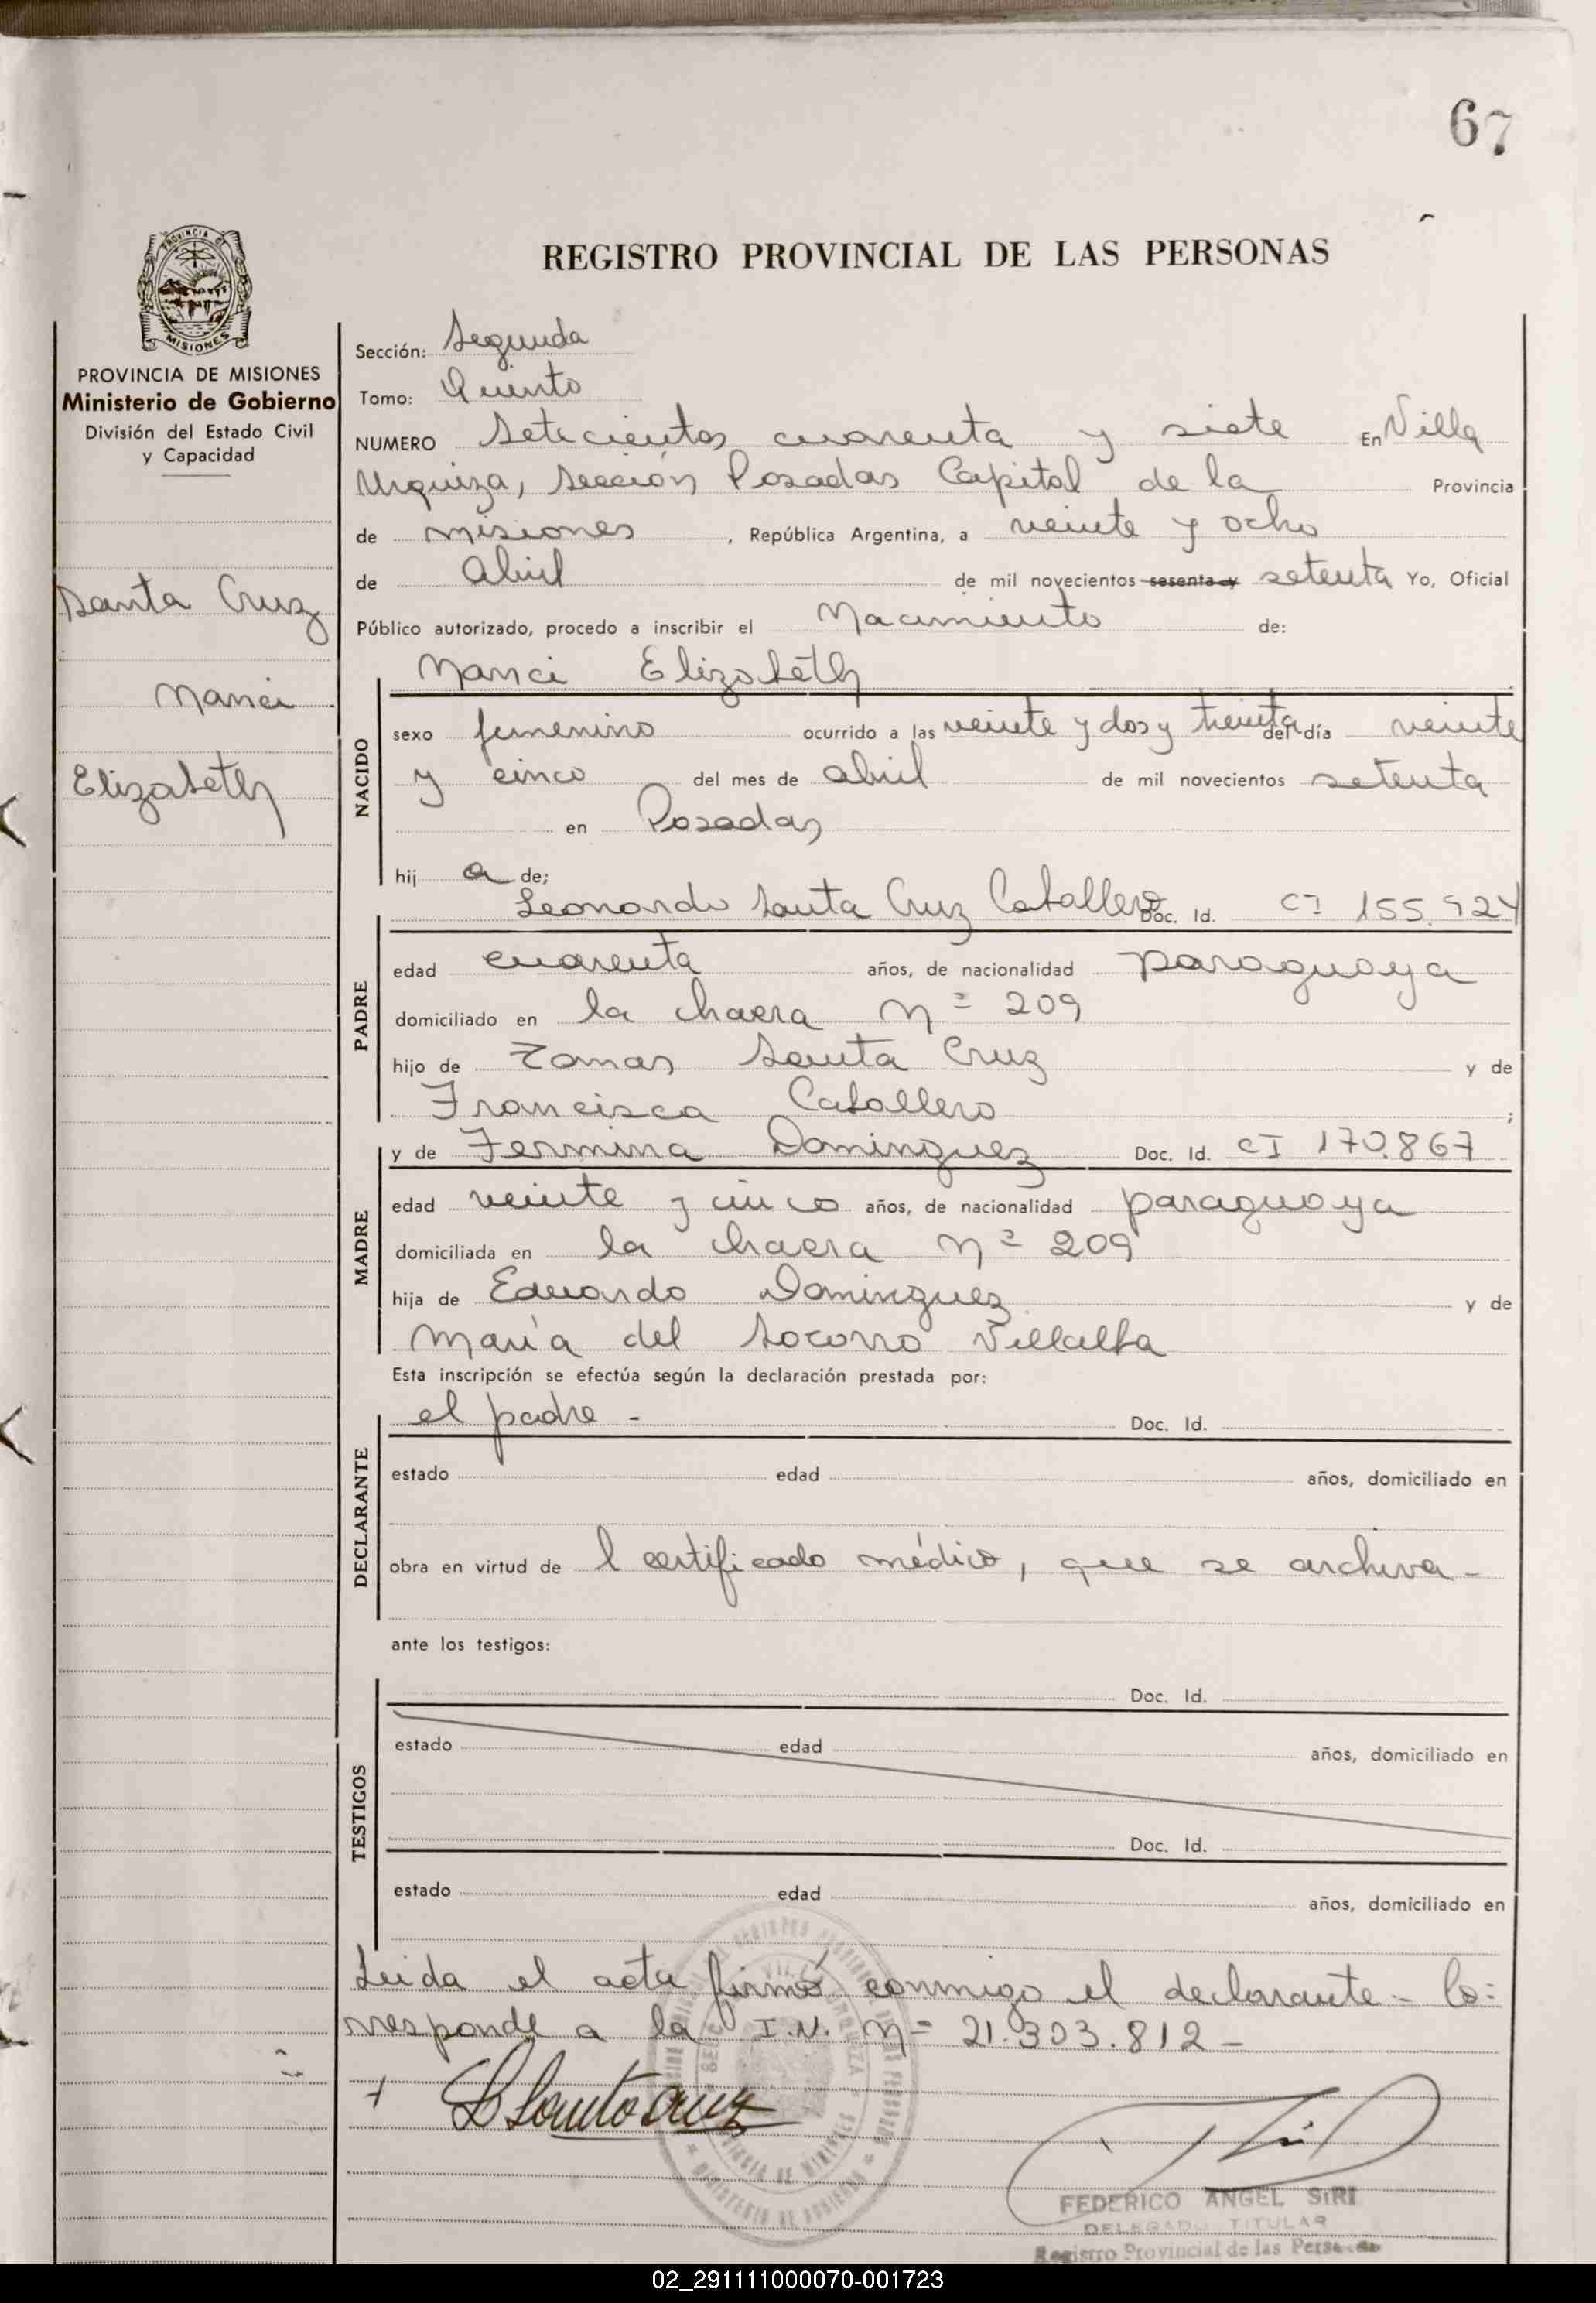 67
REGISTRO PROVINCIAL DE LAS PERSONAS
PROVINCIA DE
MISIONES
PROVINCIA DE MISIONES
Ministerio de Gobierno
División del Estado Civil
y Capacidad
Santa Cruz
Nanci
Elizabeth
Sección: Segunda
Tomo: Quinto
NUMERO Setecientos cuarenta y siete En Villa
Urquiza, Sección Posadas Capital de la Provincia
de Misiones , República Argentina, a veinte y ocho
de Abril de mil novecientos sesenta y setenta Yo, Oficial
Público autorizado, procedo a inscribir el Nacimiento de:
Nanci Elizabeth
NACIDO
sexo femenino ocurrido a las veinte y dos y treinta del día veinte
y cinco del mes de abril de mil novecientos setenta
en Posadas
hij a de;
Leonardo Santa Cruz Caballero Doc. Id. CI 155.924
PADRE
edad cuarenta años, de nacionalidad paraguaya
domiciliado en la chacra nº 209
hijo de Tomas Santa Cruz y de
Francisca Caballero ;
y de Fermina Dominguez Doc. Id. CI 170.867
MADRE
edad veinte y cinco años, de nacionalidad paraguaya
domiciliada en la chacra nº 209
hija de Eduardo Dominguez y de
María del Socorro Villalba
Esta inscripción se efectúa según la declaración prestada por:
el padre - Doc. Id.
DECLARANTE
estado edad años, domiciliado en
obra en virtud de l certificado médico, que se archiva -
ante los testigos:
Doc. Id.
TESTIGOS
estado edad años, domiciliado en
Doc. Id.
estado edad años, domiciliado en
Leida el acta firmó conmigo el declarante - Co=
rresponde a la I.N. nº 21.303.812 -
+ L Santa Cruz
FEDERICO ANGEL SIRI
DELEGADO TITULAR
Registro Provincial de las Personas
02_291111000070-001723